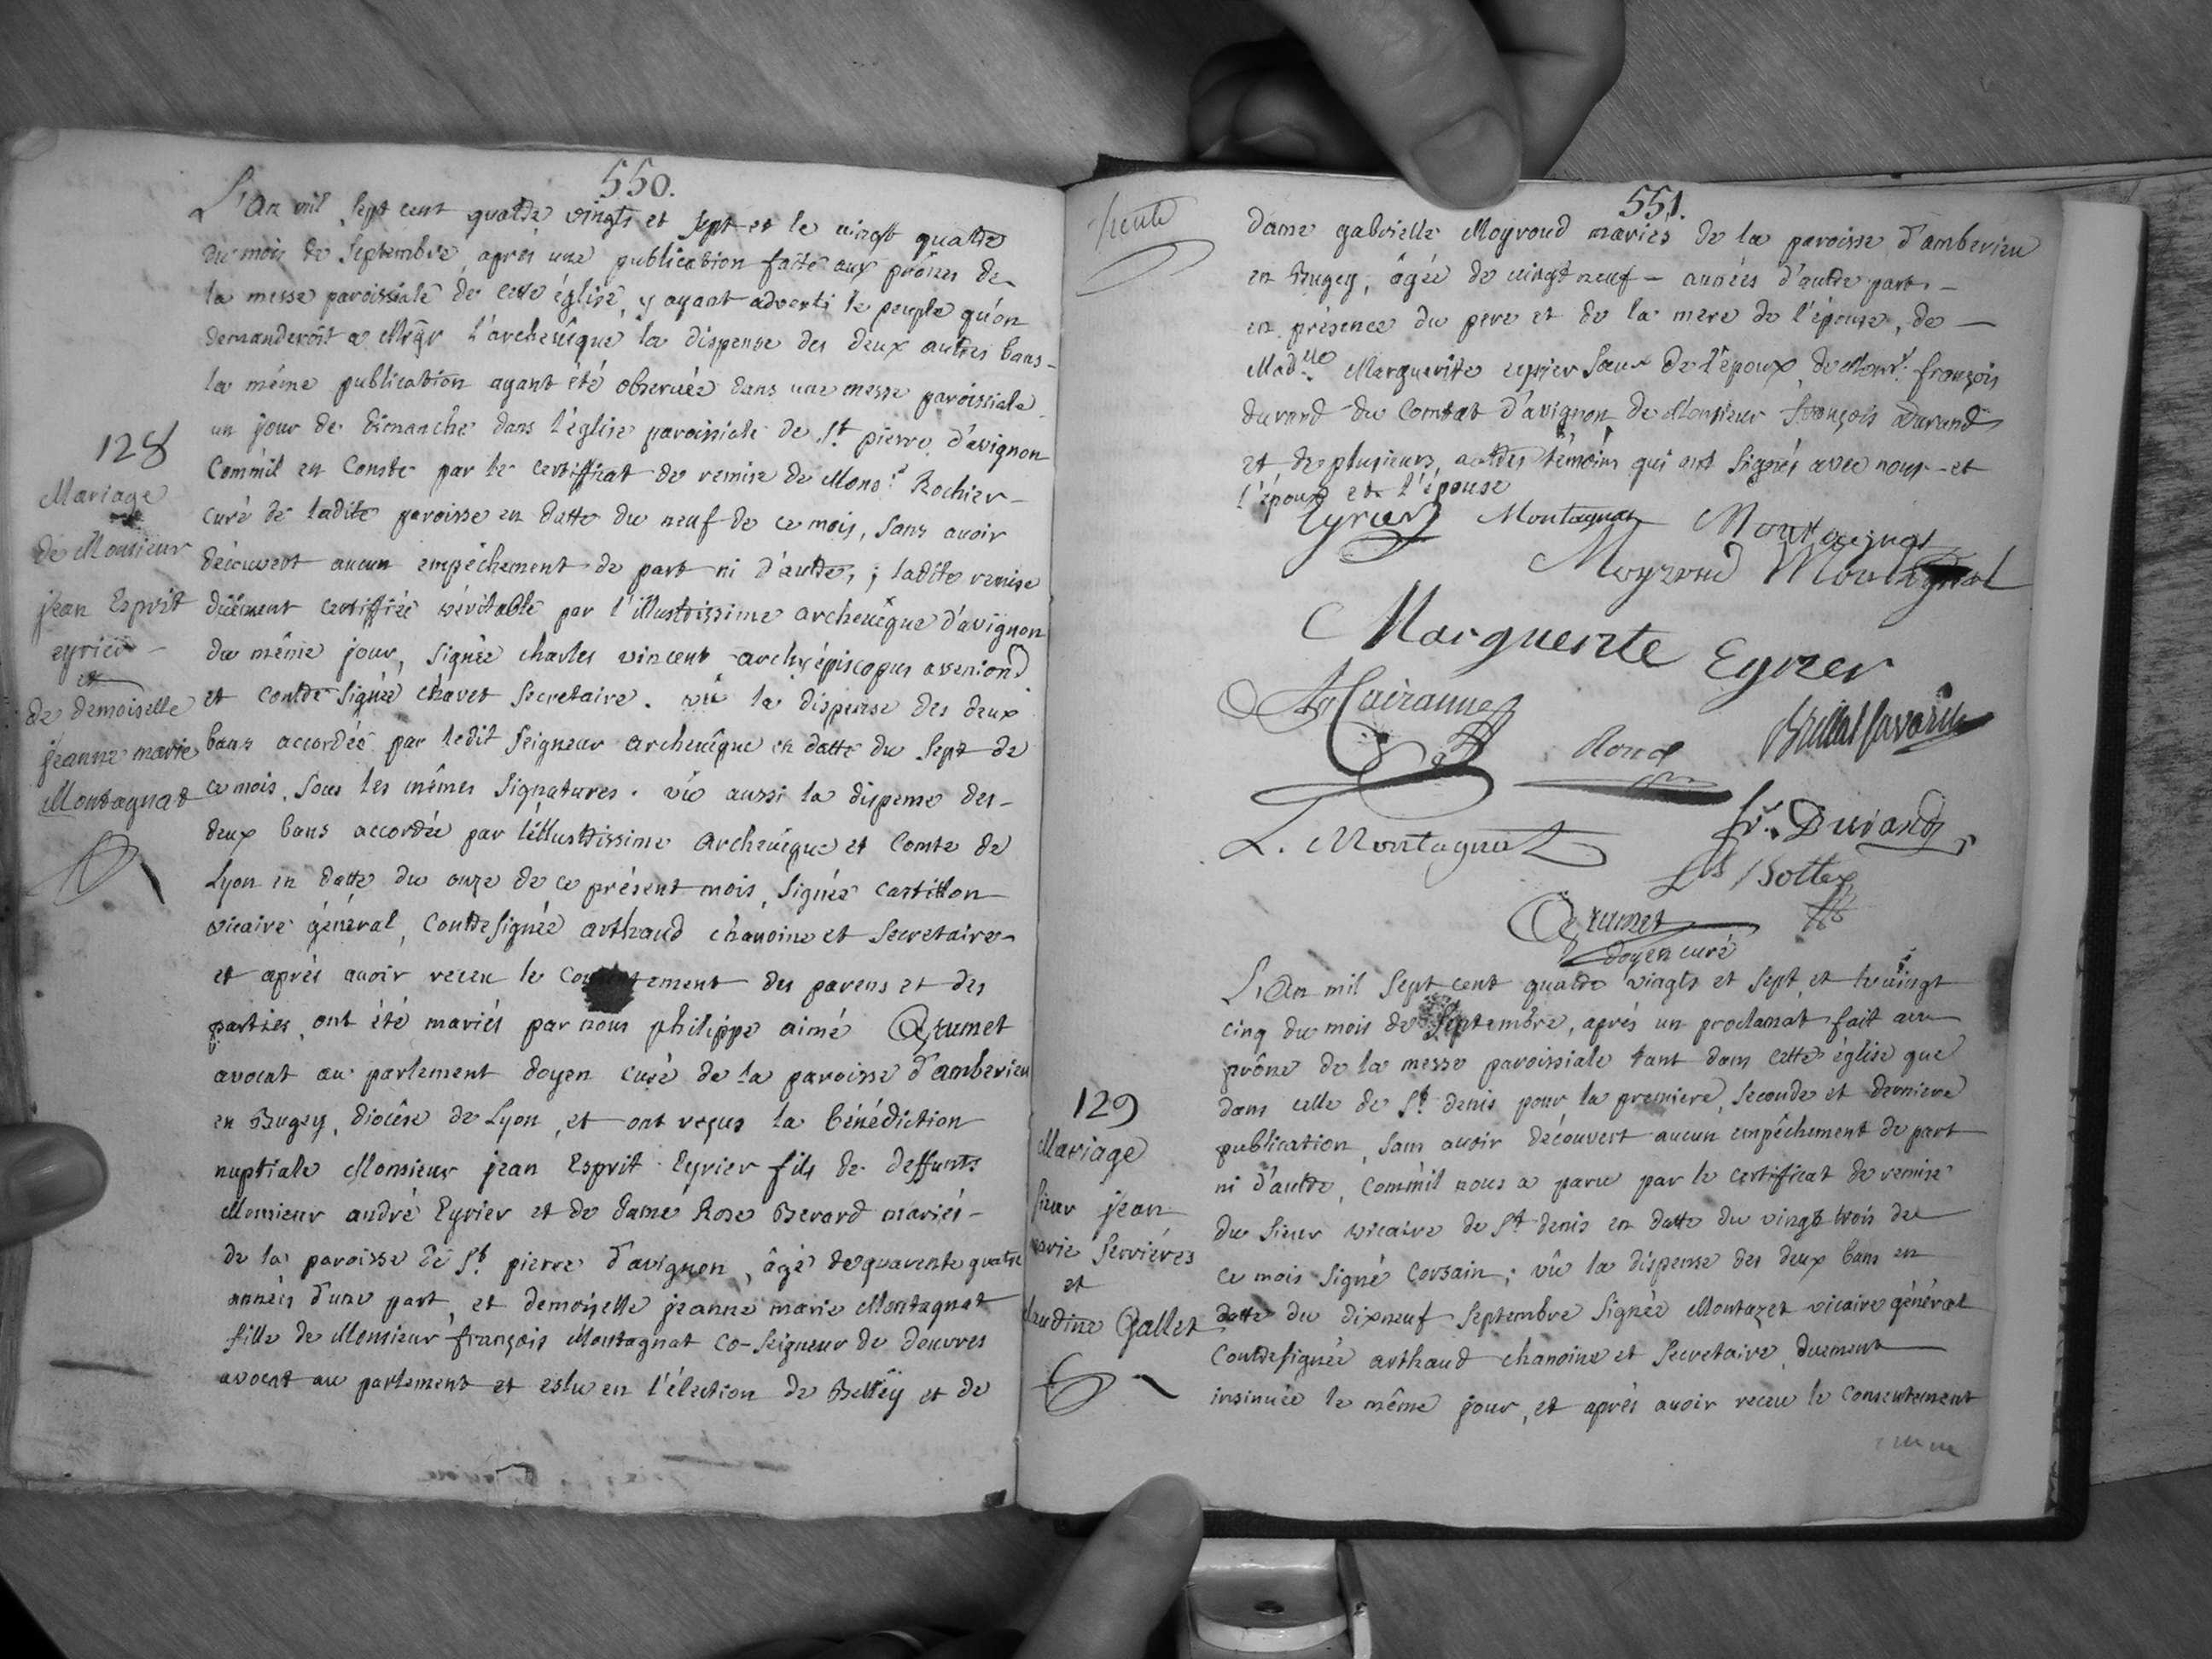 550.
L'An mil sept cent quatre vingts et sept et le vingt quatre
du mois de Septembre après une publication faite aux prônes de
la messe paroissiale de cette église, y ayant adverti le peuple qu'on
demanderoit a Mgr l'archevêque la dispense des deux autres bans
la même publication ayant été observée dans une messe paroissiale
un jour de dimanche dans l'église paroissiale de St pierre d'avignon
Comm'il en Conste par le certifficat de remise de Mons.r Rochier
curé de ladite paroisse en datte du neuf de ce mois, sans avoir
découvert aucun empêchement de part ni d'autre, ; ladite remise
düement certiffiée véritable par l'illustrissime archevêque d'avignon
du même jour, signée charles vincent archiépiscopus avenion
et contre signée chavet Secretaire. vû la dispense des deux
bans accordée par ledit Seigneur archevêque en datte du Sept de
ce mois, sous les mêmes signatures. vû aussi la dispense des
deux bans accordée par l'illustrissime archevêque et Comte de
Lyon en datte du onze de ce présent mois, signée castillon
vicaire général, Contresignée arthaud chanoine et Secretaire
et après avoir receu le des parens et des
parties, ont été mariés par nous philippe aimé Grumet
avocat au parlement doyen curé de la paroisse d'amberieu
en Bugey, diocèse de Lyon, et ont reçus la bénédiction
nuptiale Monsieur jean Esprit Eyrier fils de deffunts
Monsieur andré Eyrier et de dame Rose Berard mariés
de la paroisse de St pierre d'avignon, âgé de quarente quatre
années d'une part, et demoiselle jeanne marie Montagnat
fille de Monsieur françois Montagnat Co-Seigneur de douvres
avocat au parlement et eslu en l'élection de Belleÿ et de
128
Mariage
de Monsieur
jean Esprit
eyrier
et
de demoiselle
jeanne marie
Montagnat
551.
dame gabrielle Moyroud mariés de la paroisse d'amberieu
en Bugey, âgée de vingt neuf - années d'autre part -
en présence du pere et de la mere de l'épouse, de
Mad.lle Marguerite eyrier Sœur de l'époux, de Mons.r françois
durand du Comtat d'avignon, de Monsieur françois durand
et de plusieurs autres témoins qui ont signés avec nous et
l'époux et l'épouse
Eyrier Montagnat Montagnat
Moyroud Montagnat
Marguerite Eyrier
Cairanne
Rond Brillat Savarin
L. Montagnat fr. Durand
Bottex
Grumet
doyen curé
L'An mil sept cent quatre vingts et sept, et le vingt
cinq du mois de Septembre, après un proclamat fait au
prône de la messe paroissiale tant dans cette église que
dans celle de St denis pour la premiere, seconde et derniere
publication, sans avoir découvert aucun empêchement de part
ni d'autre, Comm'il nous a paru par le certificat de remise
du Sieur vicaire de St denis en datte du vingt trois de
ce mois signé Corsain; vû la dispense des deux bans en
datte du dixneuf Septembre signée Montazet vicaire général
Contresignée arthaud chanoine et Secretaire, duement
insinuée le même jour, et après avoir receu le Consentement
129
Mariage
Sieur jean
marie Serrières
et
claudine Gallet